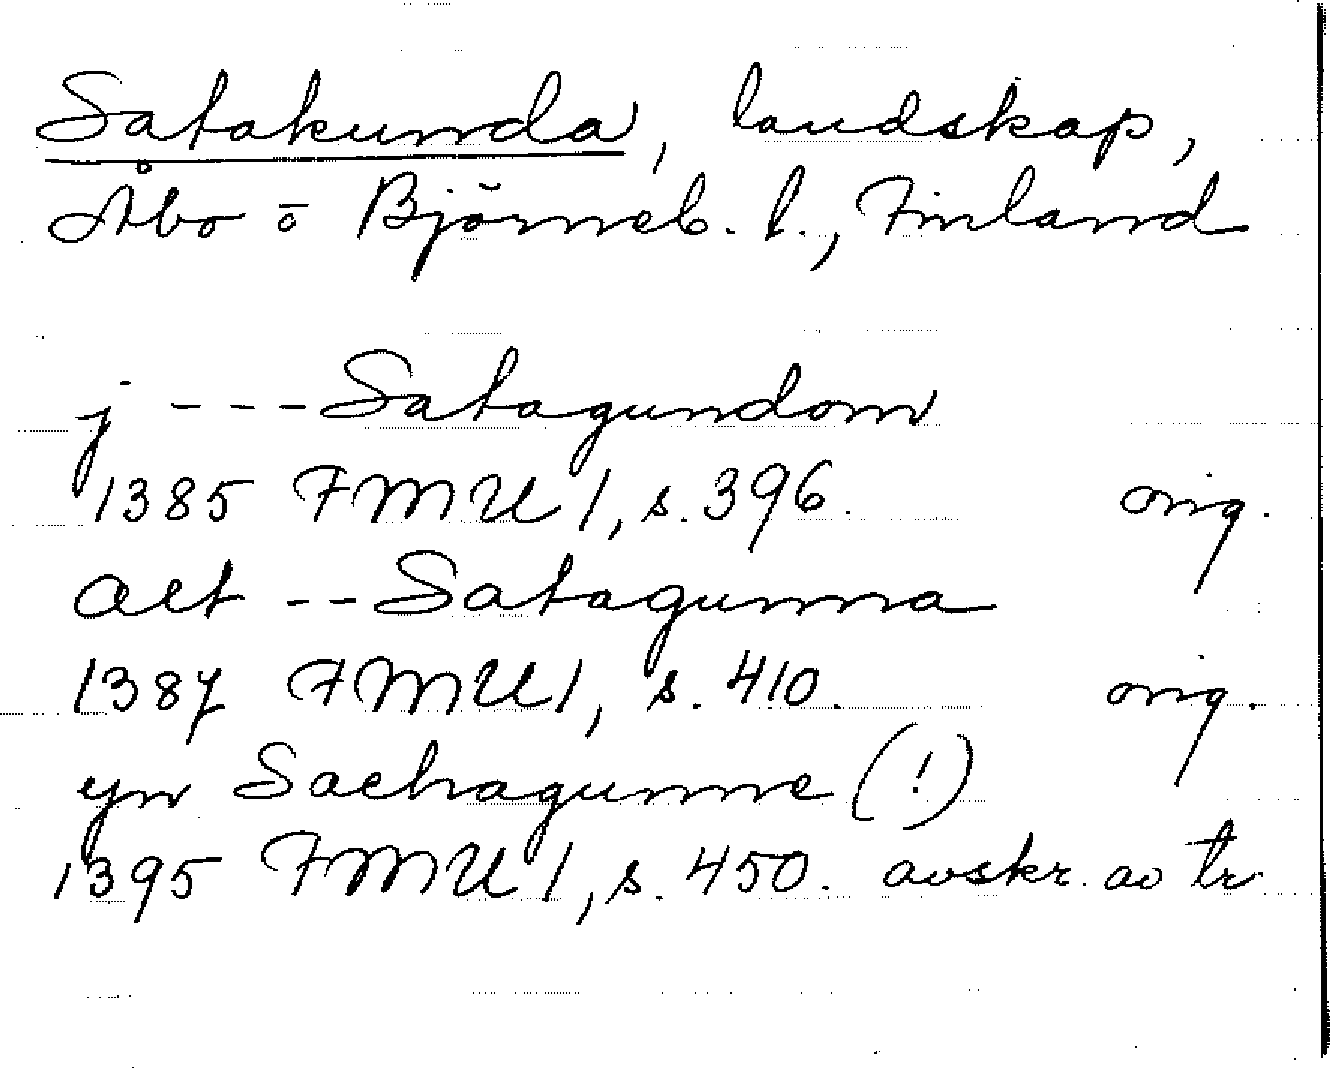 Satakunda, landskap,
Åbo o Björneb. l., Finland
j --- Satagundom
1385 FMU 1, s. 396. orig.
aet -- Satagunna
1387 FMU 1, s. 410. orig.
yn Sachagunne (!)
1395 FMU 1, s. 450. avskr. av tr